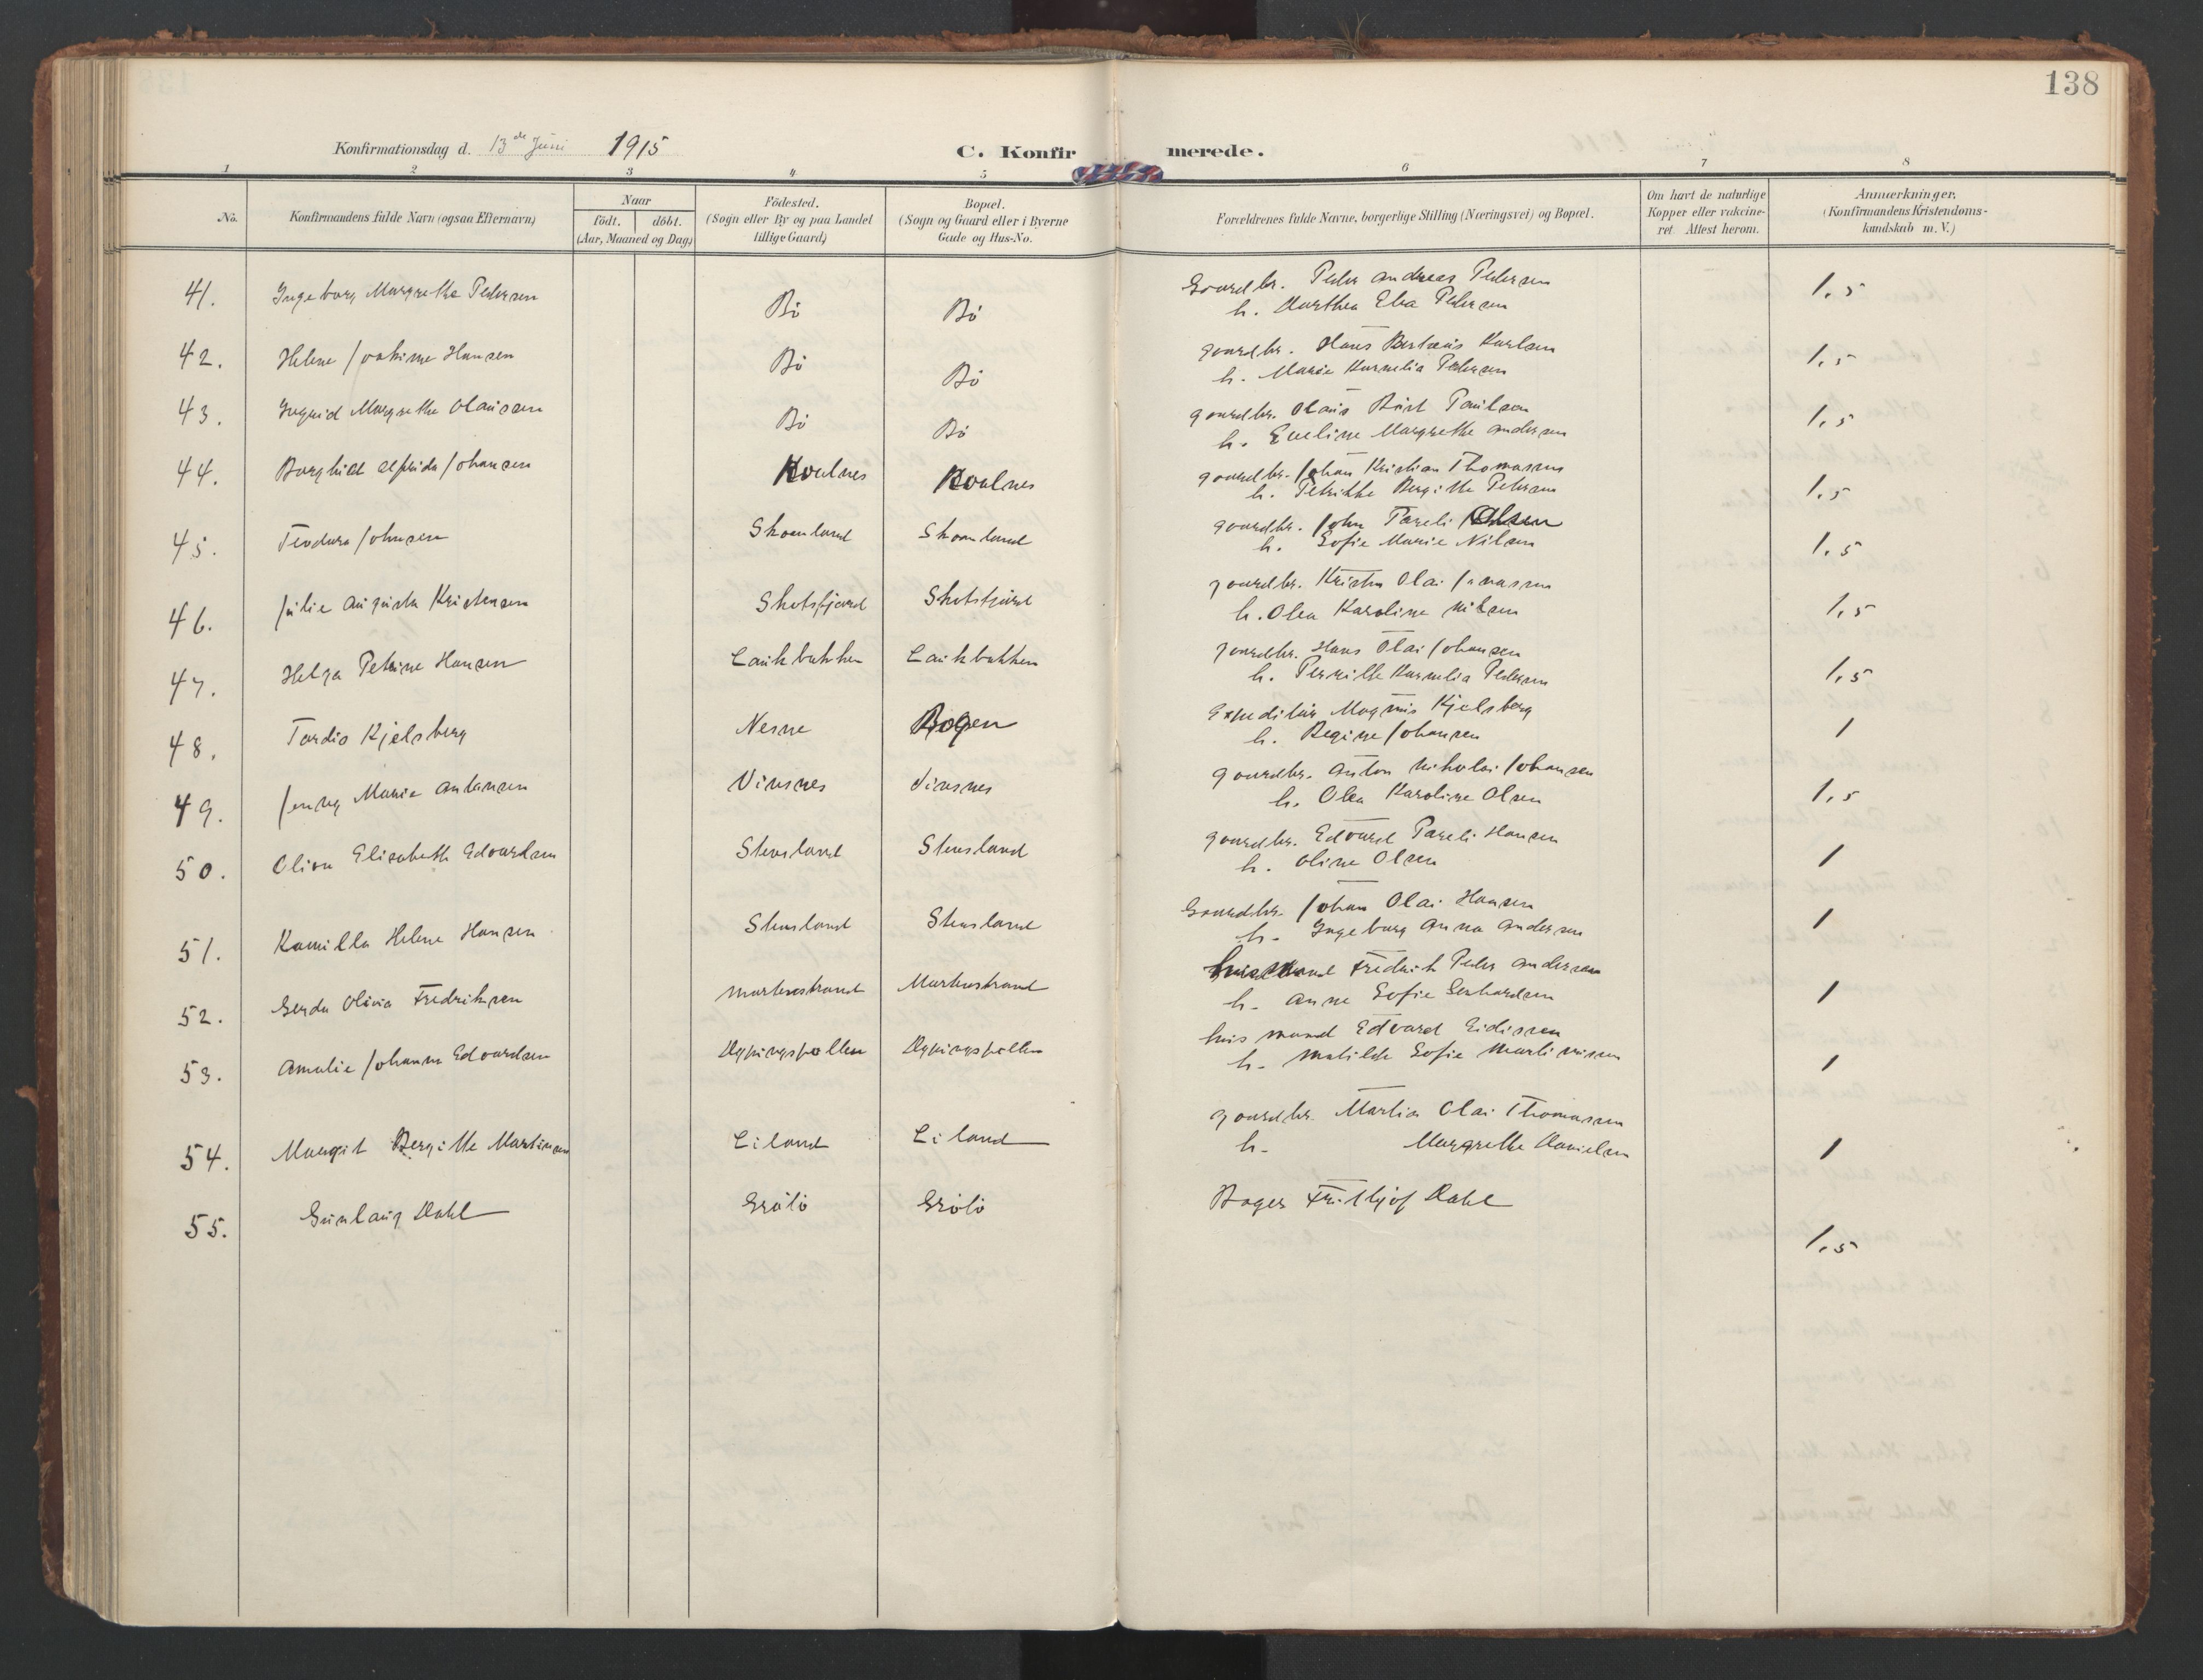 138
Konfirmationsdag d. 13de Juni 1915
C. Konfirmerede.
1 2 3 4 5 6 7 8
No.
Konfirmandens fulde Navn (ogsaa Efternavn)
Naar
födt. döbt.
(Aar, Maaned og Dag)
Födested.
(Sogn eller By og paa Landet
tillige Gaard)
Bopæl.
(Sogn og Gaard eller i Byerne
Gade og Hus-No.
Forældrenes fulde Navne, borgerlige Stilling (Næringsvei) og Bopæl.
Om havt de naturlige
Kopper eller vakcine-
ret. Attest herom.
Anmærkninger.
(Konfirmandens Kristendoms-
kundskab m. V.)
41. Ingeborg Margrethe Pedersen Bö Bö Gaardbr. Peder Andreas Pedersen 1,5
h. Dorthea Elea Pedersen
42. Helene Joakime Hansen Bö Bö gaardbr. Hans Karlsen 1,5
h. Marie Kornelia Pedersen
43. Ingrid Margrethe Olausen Bö Bö gaardbr. Olaus Paulsen 1,5
h. Eveline Margrethe Andersen
44. Borghild Alfrida Johansen gaardbr. Johan Kristian Thomassen 1,5
h. Petrikke Bergitte Petersen
45. Teodora Johnsen Skoanland Skoanland gaardbr. John Pareli Olsen 1,5
h. Sofie Marie Nilsen
46. Julie Augusta Kristensen Skotsfjord Skotsfjord gaardbr. Kristen Olai Jonassen 1,5
h. Olea Karoline Nilsen
47. Helga Petrine Hansen Laukbakken Laukbakken gaardbr. Hans Olai Johansen 1,5
h. Pernille Kornelia Pedersen
48. Tordis Kjelsberg Nesne Bogen Expeditör Magnus Kjelsberg 1
h. Regine Johansen
49. Jenny Marie Antonsen Vinsnes Vinsnes gaardbr. Anton Nikolai Johansen 1,5
h. Olea Karoline Olsen
50. Elisabeth Edvardsen Stensland Stensland gaardbr. Edvard Pareli Hansen 1
h. Oline Olsen
51. Kamilla Helene Hansen Stensland Stensland Gaardbr. Johan Olai Hansen 1
h. Ingeborg Anna Andersen
52. Gerda Olivia Fredriksen Mortenstrand Mortenstrand husmand Fredrik Peder Andersen 1
h. Anne Sofie Gerhardsen
53. Amalie Johanna Edvardsen Dypingspollen Dypingspollen husmand Edvard Eidissen 1
h. Matilde Sofie Martinissen
54. Margit Bergitte Martinsen Liland Liland gaardbr. Martin Olai Thomassen 1
h. Margrethe Danielsen
55. Gunlaug Dahl Grötö Grötö Bager Frithjof Dahl 1,5